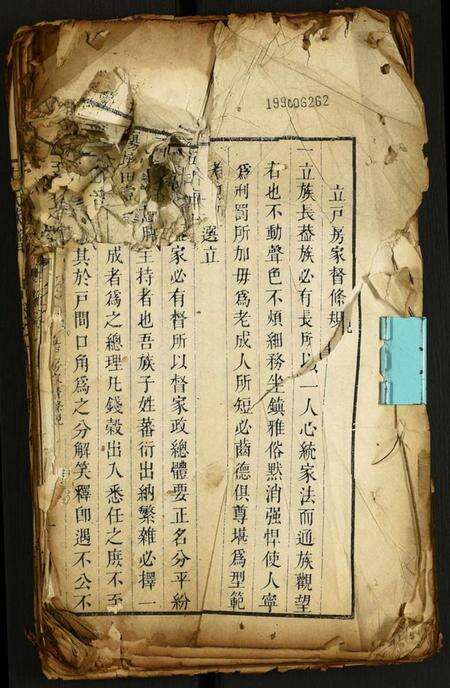 199606262
立戶房家督條規
一立族長葢族必有長所以一人心統家法而通族觀望
右也不動聲色不煩細務坐鎮雅俗默消强悍使人寧
爲刑罰所加毋爲老成人所短必齒德俱尊堪爲型範
者 選立
家必有督所以督家政總體要正名分平紛
主持者也吾族子姓蕃衍出納繁雜必擇一
成者爲之總理凡錢穀出入悉任之庶不至
其於戶間口角爲之分解笑釋卽遇不公不